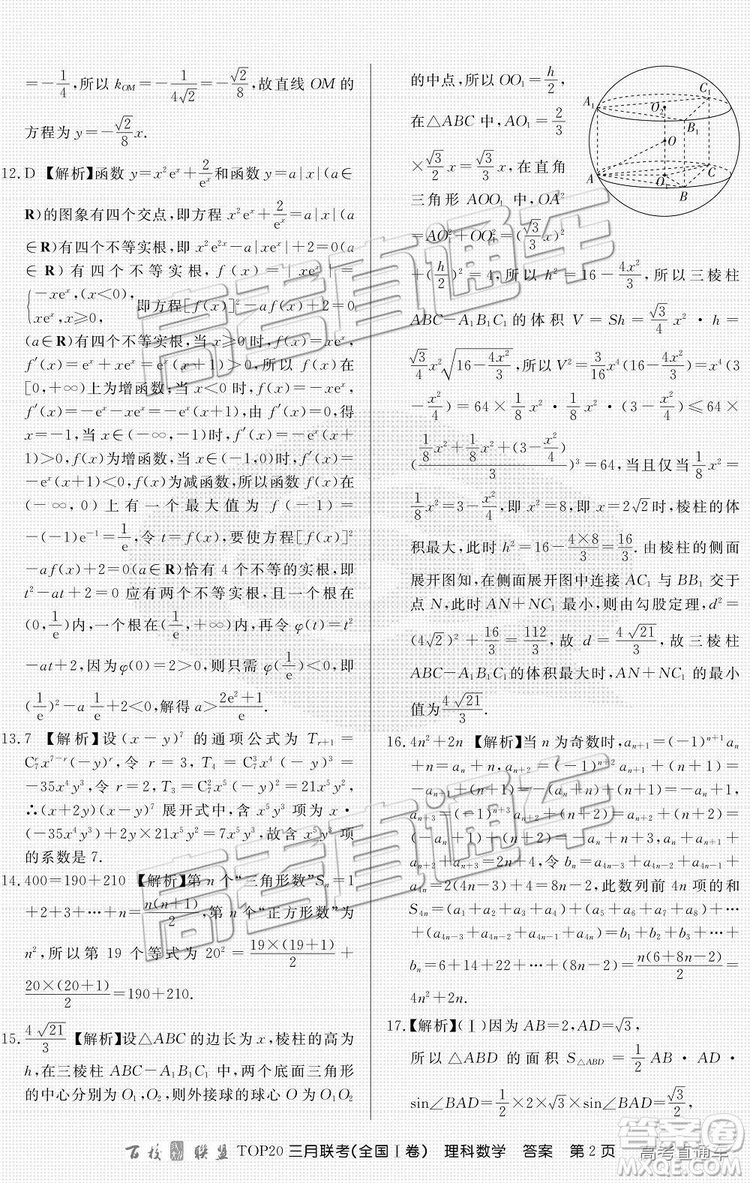 =-1/4,所以 k_OM=-1/(4√2)=-√2/8,故直线 OM 的
方程为 y=-√2/8 x.
12.D 【解析】函数 y=x²eˣ+2/eˣ 和函数 y=a|x|(a∈
R)的图象有四个交点,即方程 x²eˣ+2/eˣ=a|x|(a
∈R)有四个不等实根,即 x²e²ˣ-a|x|eˣ+2=0(a
∈R)有四个不等实根,令 f(x)=|x|eˣ=
{-xeˣ,(x<0) xeˣ,x≥0, 即方程[f(x)]²-af(x)+2=0
(a∈R)有四个不等实根,当 x≥0 时,f(x)=xeˣ,
f′(x)=eˣ+xeˣ=eˣ(x+1)>0,所以 f(x)在
[0,+∞)上为增函数;当 x<0 时,f(x)=-xeˣ,
f′(x)=-eˣ-xeˣ=-eˣ(x+1),由 f′(x)=0,得
x=-1,当 x∈(-∞,-1)时,f′(x)=-eˣ(x+1)
>0,f(x)为增函数,当 x∈(-1,0)时,f′(x)=
-eˣ(x+1)<0,f(x)为减函数,所以 f(x)在
(-∞,0)上有一个最大值为 f(-1)=
-(-1)e⁻¹=1/e,令 t=f(x),要使方程[f(x)]²
-af(x)+2=0(a∈R)恰有 4 个不等实根,即
t²-at+2=0 应有两个不等实根,且一个根在
(0,1/e)内,一个根在(1/e,+∞)内,再令 φ(t)=t²
-at+2,因为 φ(0)=2>0,则只需 φ(1/e)<0,即
(1/e)²-a/e+2<0,解得 a>(2e²+1)/e.
13.7 【解析】设(x-y)⁷ 的通项公式为 T_{r+1}=
C₇ʳx^{7-r}(-y)ʳ,令 r=3,T₄=C₇³x⁴(-y)³=
-35x⁴y³,令 r=2,T₃=C₇²x⁵y²=21x⁵y²,
∴(x+2y)(x-y)⁷ 展开式中,含 x⁵y³ 项为 x•
(-35x⁴y³)+2y•21x⁵y²=7x⁵y³,故含 x⁵y³ 项
的系数是 7.
14.400=190+210 【解析】第 n 个“三角形数”Sₙ=1
+2+3+…+n=n(n+1)/2,第 n 个“正方形数”为
n²,所以第 19 个等式为 20²=19×(19+1)/2+
20×(20+1)/2=190+210.
15.4√21/3 【解析】设△ABC 的边长为 x,棱柱的高为
h,在三棱柱 ABC-A₁B₁C₁ 中,两个底面三角形
的中心分别为 O₁,O₂,则外接球的球心 O 为 O₁O₂
的中点,所以 OO₁=h/2,
在△ABC 中,AO₁=2/3
×√3/2 x=√3/3 x,在直角
三角形 AOO₁ 中,OA²
=AO₁²+OO₁²=(√3/3 x)²
+(h/2)²=4,所以 h²=16-4x²/3,所以三棱柱
ABC-A₁B₁C₁ 的体积 V=Sh=√3/4 x²•h=
√3/4 x²√(16-4x²/3),所以 V²=3/16 x⁴(16-4x²/3)=1/4 x⁴(3
-x²/4)=64×1/8 x²•1/8 x²•(3-x²/4)≤64×
((1/8 x²+1/8 x²+3-x²/4)/3)³=64,当且仅当
1/8 x²=3-x²/4,即 x²=8,即 x=2√2时,棱柱的体
积最大,此时 h²=16-4×8/3=16/3.由棱柱的侧面
展开图知,在侧面展开图中连接 AC₁ 与 BB₁ 交
于点 N,此时 AN+NC₁ 最小,则由勾股定理,d²=
(4√2)²+16/3=112/3,故 d=4√21/3,故三棱柱
ABC-A₁B₁C₁ 的体积最大时,AN+NC₁ 的最小
值为4√21/3.
16.4n²+2n 【解析】当 n 为奇数时,a_{n+1}=(-1)^{n+1}aₙ
+n=aₙ+n,a_{n+2}=(-1)^{n+2}a_{n+1}+(n+1)=-a_{n+1}
+n+1=-(aₙ+n)+n+1=-aₙ+1,
a_{n+3}=(-1)^{n+3}a_{n+2}+(n+2)=a_{n+2}+(n+2)=
-aₙ+n+3,
a_{n+2}+a_{n+3}=aₙ+(aₙ+n)+(-aₙ+1)+
(-aₙ+n+3)=2n+4,令 bₙ=a_{4n-3}+a_{4n-2}+
a_{4n-1}+a_{4n}=2(4n-3)+4=8n-2,此数列前 4n 项的和
S_{4n}=(a₁+a₂+a₃+a₄)+(a₅+a₆+a₇+a₈)+…+
(a_{4n-3}+a_{4n-2}+a_{4n-1}+a_{4n})=b₁+b₂+…+bₙ=
6+14+22+…+(8n-2)=n(6+8n-2)/2=
4n²+2n.
17.【解析】(Ⅰ)因为 AB=2,AD=√3,
所以△ABD 的面积 S△ABD=1/2 AB•AD•
sin∠BAD=1/2×2×√3×sin∠BAD=√3/2,
A₁ C₁ O₂ B₁ O A C O₁ B
百校联盟 TOP20 三月联考(全国Ⅰ卷) 理科数学 答案 第 2 页
高考直通车
高考直通车
高考直通车